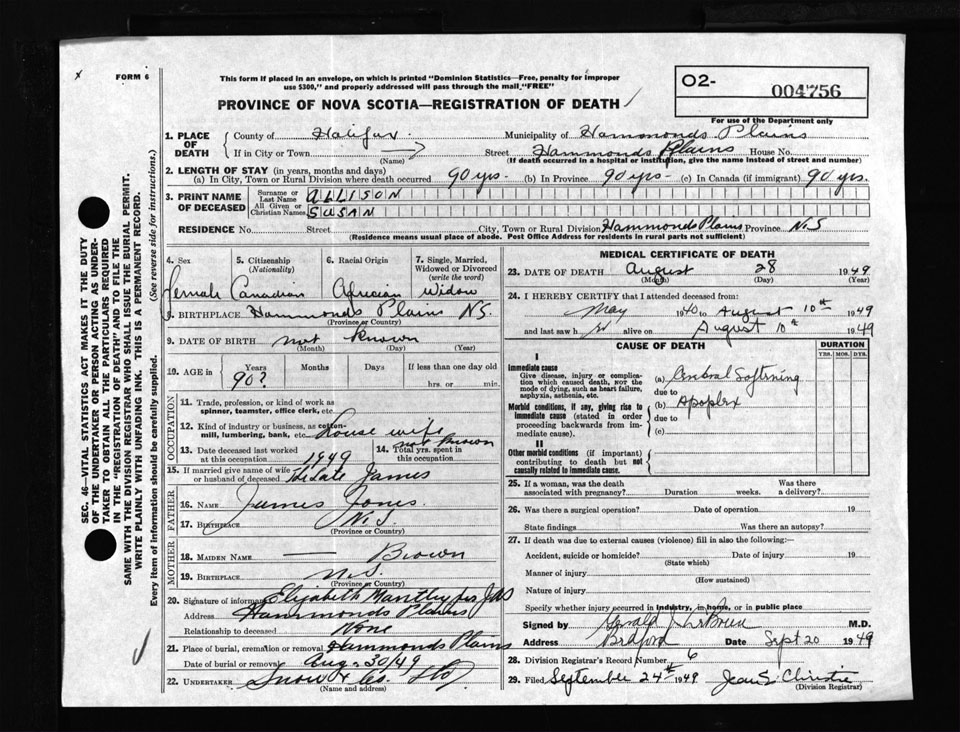 x
FORM 6
This form if placed in an envelope, on which is printed "Dominion Statistics—Free, penalty for improper
use $300," and properly addressed will pass through the mail "FREE"
PROVINCE OF NOVA SCOTIA—REGISTRATION OF DEATH
O2- 004756
For use of the Department only
1. PLACE OF DEATH
County of Halifax Municipality of Hammonds Plains
If in City or Town (Name) Street Hammonds Plains House No.
(If death occurred in a hospital or institution, give the name instead of street and number)
2. LENGTH OF STAY (in years, months and days)
(a) In City, Town or Rural Division where death occurred 90 yrs. (b) In Province 90 yrs. (c) In Canada (if immigrant) 90 yrs.
3. PRINT NAME OF DECEASED
Surname or Last Name ALLISON
All Given or Christian Names SUSAN
RESIDENCE No. Street City, Town or Rural Division Hammonds Plains Province N.S
(Residence means usual place of abode. Post Office Address for residents in rural parts not sufficient)
4. Sex
Female
5. Citizenship (Nationality)
Canadian
6. Racial Origin
Africian
7. Single, Married, Widowed or Divorced (write the word)
Widow
8. BIRTHPLACE Hammonds Plains N.S.
(Province or Country)
9. DATE OF BIRTH not known
(Month) (Day) (Year)
10. AGE in Years Months Days If less than one day old
90? hrs. or min.
OCCUPATION
11. Trade, profession, or kind of work as
spinner, teamster, office clerk, etc.
12. Kind of industry or business, as cotton-
mill, lumbering, bank, etc. House wife
13. Date deceased last worked at this occupation 1949
14. Total yrs. spent in this occupation not known
15. If married give name of wife
or husband of deceased The Late James
FATHER
16. NAME James Jones
17. BIRTHPLACE N.S.
(Province or Country)
MOTHER
18. MAIDEN NAME — Brown
19. BIRTHPLACE N.S.
(Province or Country)
20. Signature of informant Elizabeth Mantley
Address Hammonds Plains
Relationship to deceased None
21. Place of burial, cremation or removal Hammonds Plains
Date of burial or removal Aug. 30/49
22. UNDERTAKER Snow & Co. Ltd
(Name and address)
MEDICAL CERTIFICATE OF DEATH
23. DATE OF DEATH August 28 1949
(Month) (Day) (Year)
24. I HEREBY CERTIFY that I attended deceased from:
May 1940 to August 10th 1949
and last saw h er alive on August 10th 1949
CAUSE OF DEATH DURATION
YRS. MOS. DYS.
I
Immediate cause
Give disease, injury or complication which caused death, NOT the mode of dying, such as heart failure, asphyxia, asthenia, etc.
(a) Cerebral Softening
due to
Morbid conditions, if any, giving rise to immediate cause (stated in order proceeding backwards from immediate cause).
(b) Apoplex
due to
(c)
II
Other morbid conditions (if important) contributing to death but not causally related to immediate cause.
25. If a woman, was the death associated with pregnancy? Duration weeks. Was there a delivery?
26. Was there a surgical operation? Date of operation 19
State findings Was there an autopsy?
27. If death was due to external causes (violence) fill in also the following:—
Accident, suicide or homicide? Date of injury 19
(State which)
Manner of injury
(How sustained)
Nature of injury
Specify whether injury occurred in industry, in home, or in public place
Signed by Gerald M.D.
Address Bedford Date Sept 20 1949
28. Division Registrar's Record Number 6
29. Filed September 24th 1949 Jean S. Christie
(Division Registrar)
SEC. 46—VITAL STATISTICS ACT MAKES IT THE DUTY
OF THE UNDERTAKER OR PERSON ACTING AS UNDER-
TAKER TO OBTAIN ALL THE PARTICULARS REQUIRED
IN THE "REGISTRATION OF DEATH" AND TO FILE THE
SAME WITH THE DIVISION REGISTRAR WHO SHALL ISSUE THE BURIAL PERMIT.
WRITE PLAINLY WITH UNFADING INK. THIS IS A PERMANENT RECORD.
Every item of information should be carefully supplied. (See reverse side for instructions.)